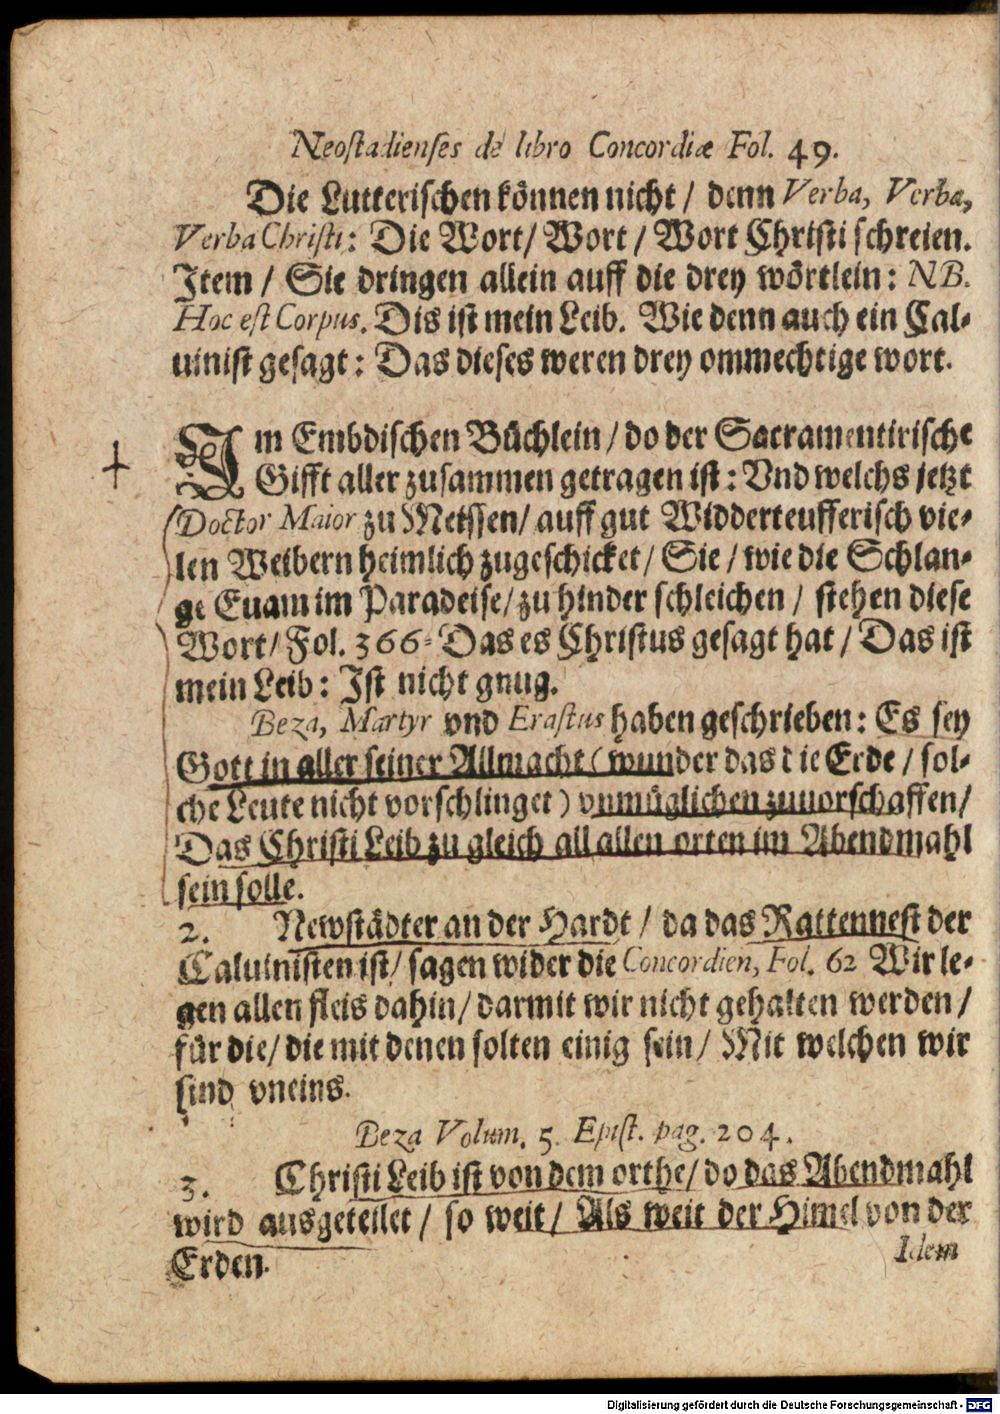 Neostadienses de libro Concordiæ Fol. 49.
Die Lutterischen können nicht / denn Verba, Verba,
Verba Christi: Die Wort/ Wort / Wort Christi schreien.
Item / Sie dringen allein auff die drey wörtlein: NB.
Hoc est Corpus. Dis ist mein Leib. Wie denn auch ein Cal-
uinist gesagt: Das dieses weren drey ommechtige wort.
Im Embdischen Büchlein / do der Sacramentirische
Gifft aller zusammen getragen ist: Vnd welchs jetzt
Doctor Maior zu Meissen/ auff gut Widderteufferisch vie-
len Weibern heimlich zugeschicket/ Sie / wie die Schlan-
ge Euam im Paradeise/ zu hinder schleichen / stehen diese
Wort/ Fol. 366- Das es Christus gesagt hat / Das ist
mein Leib: Ist nicht gnug.
Beza, Martyr vnd Erastus haben geschrieben: Es sey
Gott in aller seiner Allmacht (wunder das die Erde / sol-
che Leute nicht vorschlinget) vnmüglichen zuuorschaffen/
Das Christi Leib zu gleich all allen orten im Abendmahl
sein solle.
2. Newstädter an der Hardt / da das Rattennest der
Caluinisten ist/ sagen wider die Concordien, Fol. 62 Wir le-
gen allen fleis dahin/ darmit wir nicht gehalten werden /
für die/ die mit denen solten einig sein/ Mit welchen wir
sind vneins.
Beza Volum. 5. Epist. pag. 204.
3. Christi Leib ist von dem orthe/ do das Abendmahl
wird ausgeteilet / so weit/ Als weit der Himel von der
Erden.
Idem
Digitalisierung gefördert durch die Deutsche Forschungsgemeinschaft - DFG